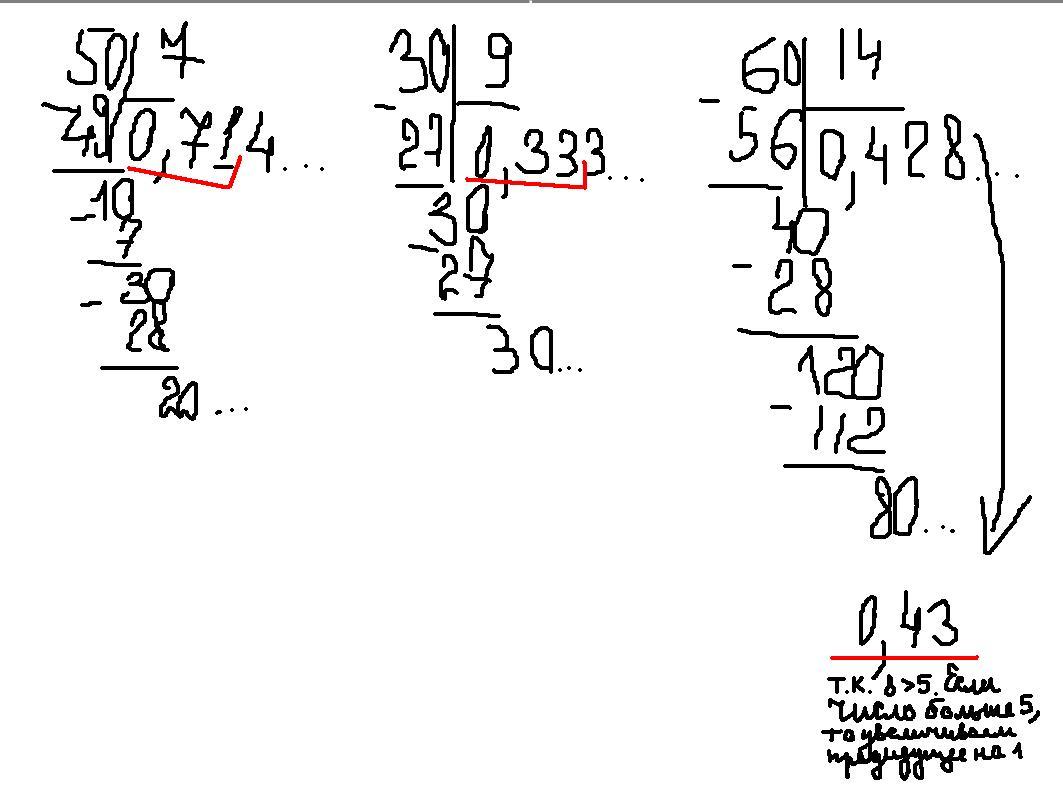 50 7
- 49 0,714...
- 10
7
- 30
28
20...
30 9
- 27 0,333...
- 30
27
30...
60 14
- 56 0,428...
40
- 28
120
- 112
80...
0,43
т.к. 8 >5. Если
число больше 5,
то увеличиваем
предидущее на 1